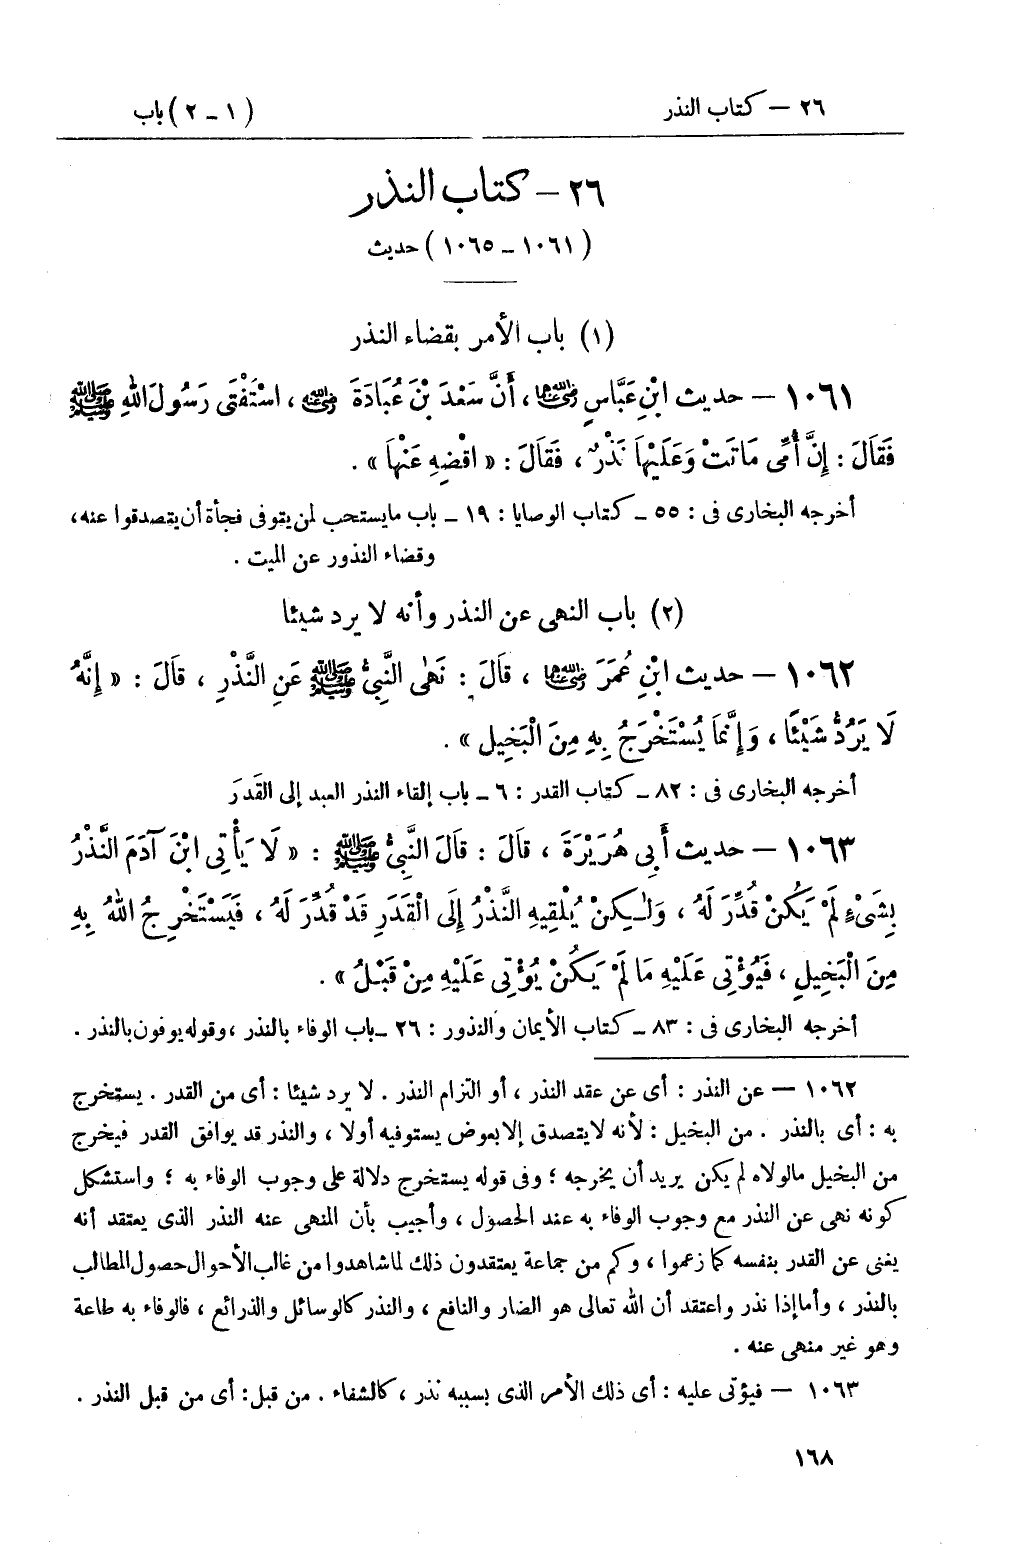 ٢٦ – كتاب النذر (١ – ٢) باب
٢٦ – كتاب النذر
(١٠٦١ – ١٠٦٥) حديث
(١) باب الأمر بقضاء النذر
١٠٦١ – حديث ابْنِ عَبَّاسٍ رضي الله عنهما، أَنَّ سَعْدَ بْنَ عُبَادَةَ رضي الله عنه، اسْتَفْتَى رَسُولَ اللهِ ﷺ
فَقَالَ : إِنَّ أُمِّى مَاتَتْ وَعَلَيْهَا نَذْرٌ، فَقَالَ : « اقْضِهِ عَنْهَا » .
أخرجه البخارى فى : ٥٥ – كتاب الوصايا : ١٩ – باب ما يستحب لمن يتوفى فجأة أن يتصدقوا عنه،
وقضاء النذور عن الميت .
(٢) باب النهى عن النذر وأنه لا يرد شيئا
١٠٦٢ – حديث ابْنِ عُمَرَ رضي الله عنهما ، قَالَ : نَهَى النَّبِىُّ ﷺ عَنِ النَّذْرِ ، قَالَ : « إِنَّهُ
لَا يَرُدُّ شَيْئًا ، وَإِنَّمَا يُسْتَخْرَجُ بِهِ مِنَ الْبَخِيلِ » .
أخرجه البخارى فى : ٨٢ – كتاب القدر : ٦ – باب إلقاء النذر العبد إلى القَدَرَ
١٠٦٣ – حديث أَبِى هُرَيْرَةَ ، قَالَ : قَالَ النَّبِىُّ ﷺ : « لَا يَأْتِى ابْنَ آدَمَ النَّذْرُ
بِشَىْءٍ لَمْ يَكُنْ قُدِّرَ لَهُ ، وَلٰكِنْ يُلْقِيهِ النَّذْرُ إِلَى الْقَدَرِ قَدْ قُدِّرَ لَهُ ، فَيَسْتَخْرِجُ اللهُ بِهِ
مِنَ الْبَخِيلِ ، فَيُؤْتِى عَلَيْهِ مَا لَمْ يَكُنْ يُؤْتِى عَلَيْهِ مِنْ قَبْلُ » .
أخرجه البخارى فى : ٨٣ – كتاب الأيمان والنذور : ٢٦ – باب الوفاء بالنذر ، وقوله يوفون بالنذر .
١٠٦٢ – عن النذر : أى عن عقد النذر ، أو التزام النذر . لا يرد شيئا : أى من القدر . يستخرج
به : أى بالنذر . من البخيل : لأنه لا يتصدق إلا بعوض يستوفيه أولا ، والنذر قد يوافق القدر فيخرج
من البخيل مالولاه لم يكن يريد أن يخرجه ؛ وفى قوله يستخرج دلالة على وجوب الوفاء به ؛ واستشكل
كونه نهى عن النذر مع وجوب الوفاء به عند الحصول ، وأجيب بأن المنهى عنه النذر الذى يعتقد أنه
يغنى عن القدر بنفسه كما زعموا ، وكم من جماعة يعتقدون ذلك لما شاهدوا من غالب الأحوال حصول المطالب
بالنذر ، وأما إذا نذر واعتقد أن الله تعالى هو الضار والنافع ، والنذر كالوسائل والذرائع ، فالوفاء به طاعة
وهو غير منهى عنه .
١٠٦٣ – فيؤتى عليه : أى ذلك الأمر الذى بسببه نذر ، كالشفاء . من قبل: أى من قبل النذر .
١٦٨